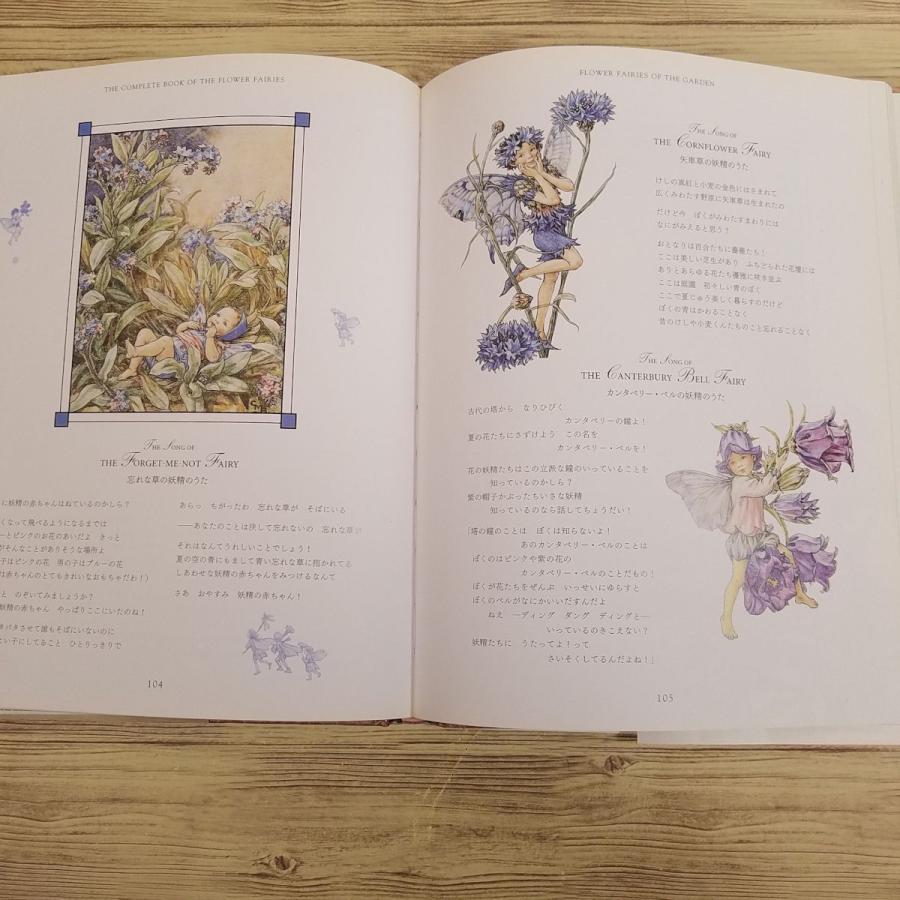 THE COMPLETE BOOK OF THE FLOWER FAIRIES
THE SONG OF
THE FORGET-ME-NOT FAIRY
忘れな草の妖精のうた
に妖精の赤ちゃんはねているのかしら?
くなって飛べるようになるまでは
ーとピンクのお花のあいだよ きっと
がそんなことがありそうな場所よ
子はピンクの花 男の子はブルーの花
は赤ちゃんのとてもきれいなおもちゃだわ!)
と のぞいてみましょうか?
妖精の赤ちゃん やっぱりここにいたのね!
タバタさせて誰もそばにいないのに
い子にしてること ひとりっきりで
あらっ ちがったわ 忘れな草が そばにいる
――あなたのことは決して忘れないの 忘れな草が
それはなんてうれしいことでしょう!
夏の空の青にもまして青い忘れな草に抱かれてる
しあわせな妖精の赤ちゃんをみつけるなんて
さあ おやすみ 妖精の赤ちゃん!
104
FLOWER FAIRIES OF THE GARDEN
THE SONG OF
THE CORNFLOWER FAIRY
矢車草の妖精のうた
けしの真紅と小麦の金色にはさまれて
広くみわたす野原に矢車草は生まれたの
だけど今 ぼくがみわたすまわりには
なにがみえると思う?
おとなりは百合たちに薔薇たち!
ここは美しい芝生があり ふちどられた花壇には
ありとあらゆる花たち優雅に咲き並ぶ
ここは庭園 初々しい青のぼく
ここで夏じゅう楽しく暮らすのだけど
ぼくの青はかわることなく
昔のけしや小麦くんたちのこと忘れることなく
THE SONG OF
THE CANTERBURY BELL FAIRY
カンタベリー・ベルの妖精のうた
古代の塔から なりひびく
カンタベリーの鐘よ!
夏の花たちにさずけよう この名を
カンタベリー・ベルを!
花の妖精たちはこの立派な鐘のいっていることを
知っているのかしら?
紫の帽子かぶったちいさな妖精
知っているのなら話してちょうだい!
「塔の鐘のことは ぼくは知らないよ!
あのカンタベリー・ベルのことは
ぼくのはピンクや紫の花の
カンタベリー・ベルのことだもの!
ぼくが花たちをぜんぶ いっせいにゆらすと
ぼくのベルがなにかいいだすんだよ
ねえ ―ディング ダング ディングと―
いっているのきこえない?
妖精たちに うたってよ!って
さいそくしてるんだよね!」
105